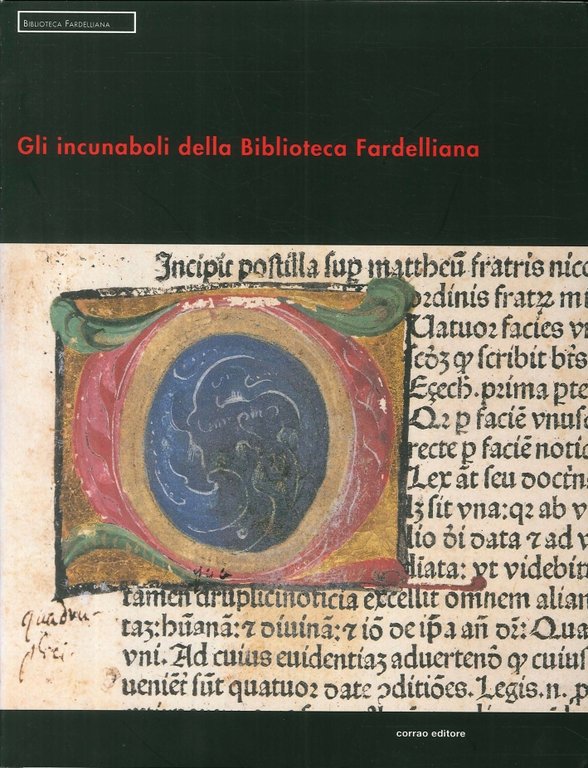 BIBLIOTECA FARDELLIANA
Gli incunaboli della Biblioteca Fardelliana
Incipit postilla sup mattheū fratris nico
ordinis fratrꝝ m
Uatuor facies vn
scōꝫ ꝙ scribit btũs
Eçech. prima pte
Q2 ꝑ faciē vnusc
recte ꝑ faciē notic
Lex āt seu doctn
lꝫ sit vna: qꝛ ab v
lio ōi data ⁊ ad v
diata: vt videbit
tamen druplicinoticia excellit omnem alian
taꝫ: hūanā: ⁊ diuinā: ⁊ iō de ip̄a an̄ dr̄: Qua
vni. Ad cuius euidentiaꝫ aduertenō ꝙ cuius
uenièt sūt quatuor date ꝯditiōes. Legis. n. p
quadru-
plici
corrao editore